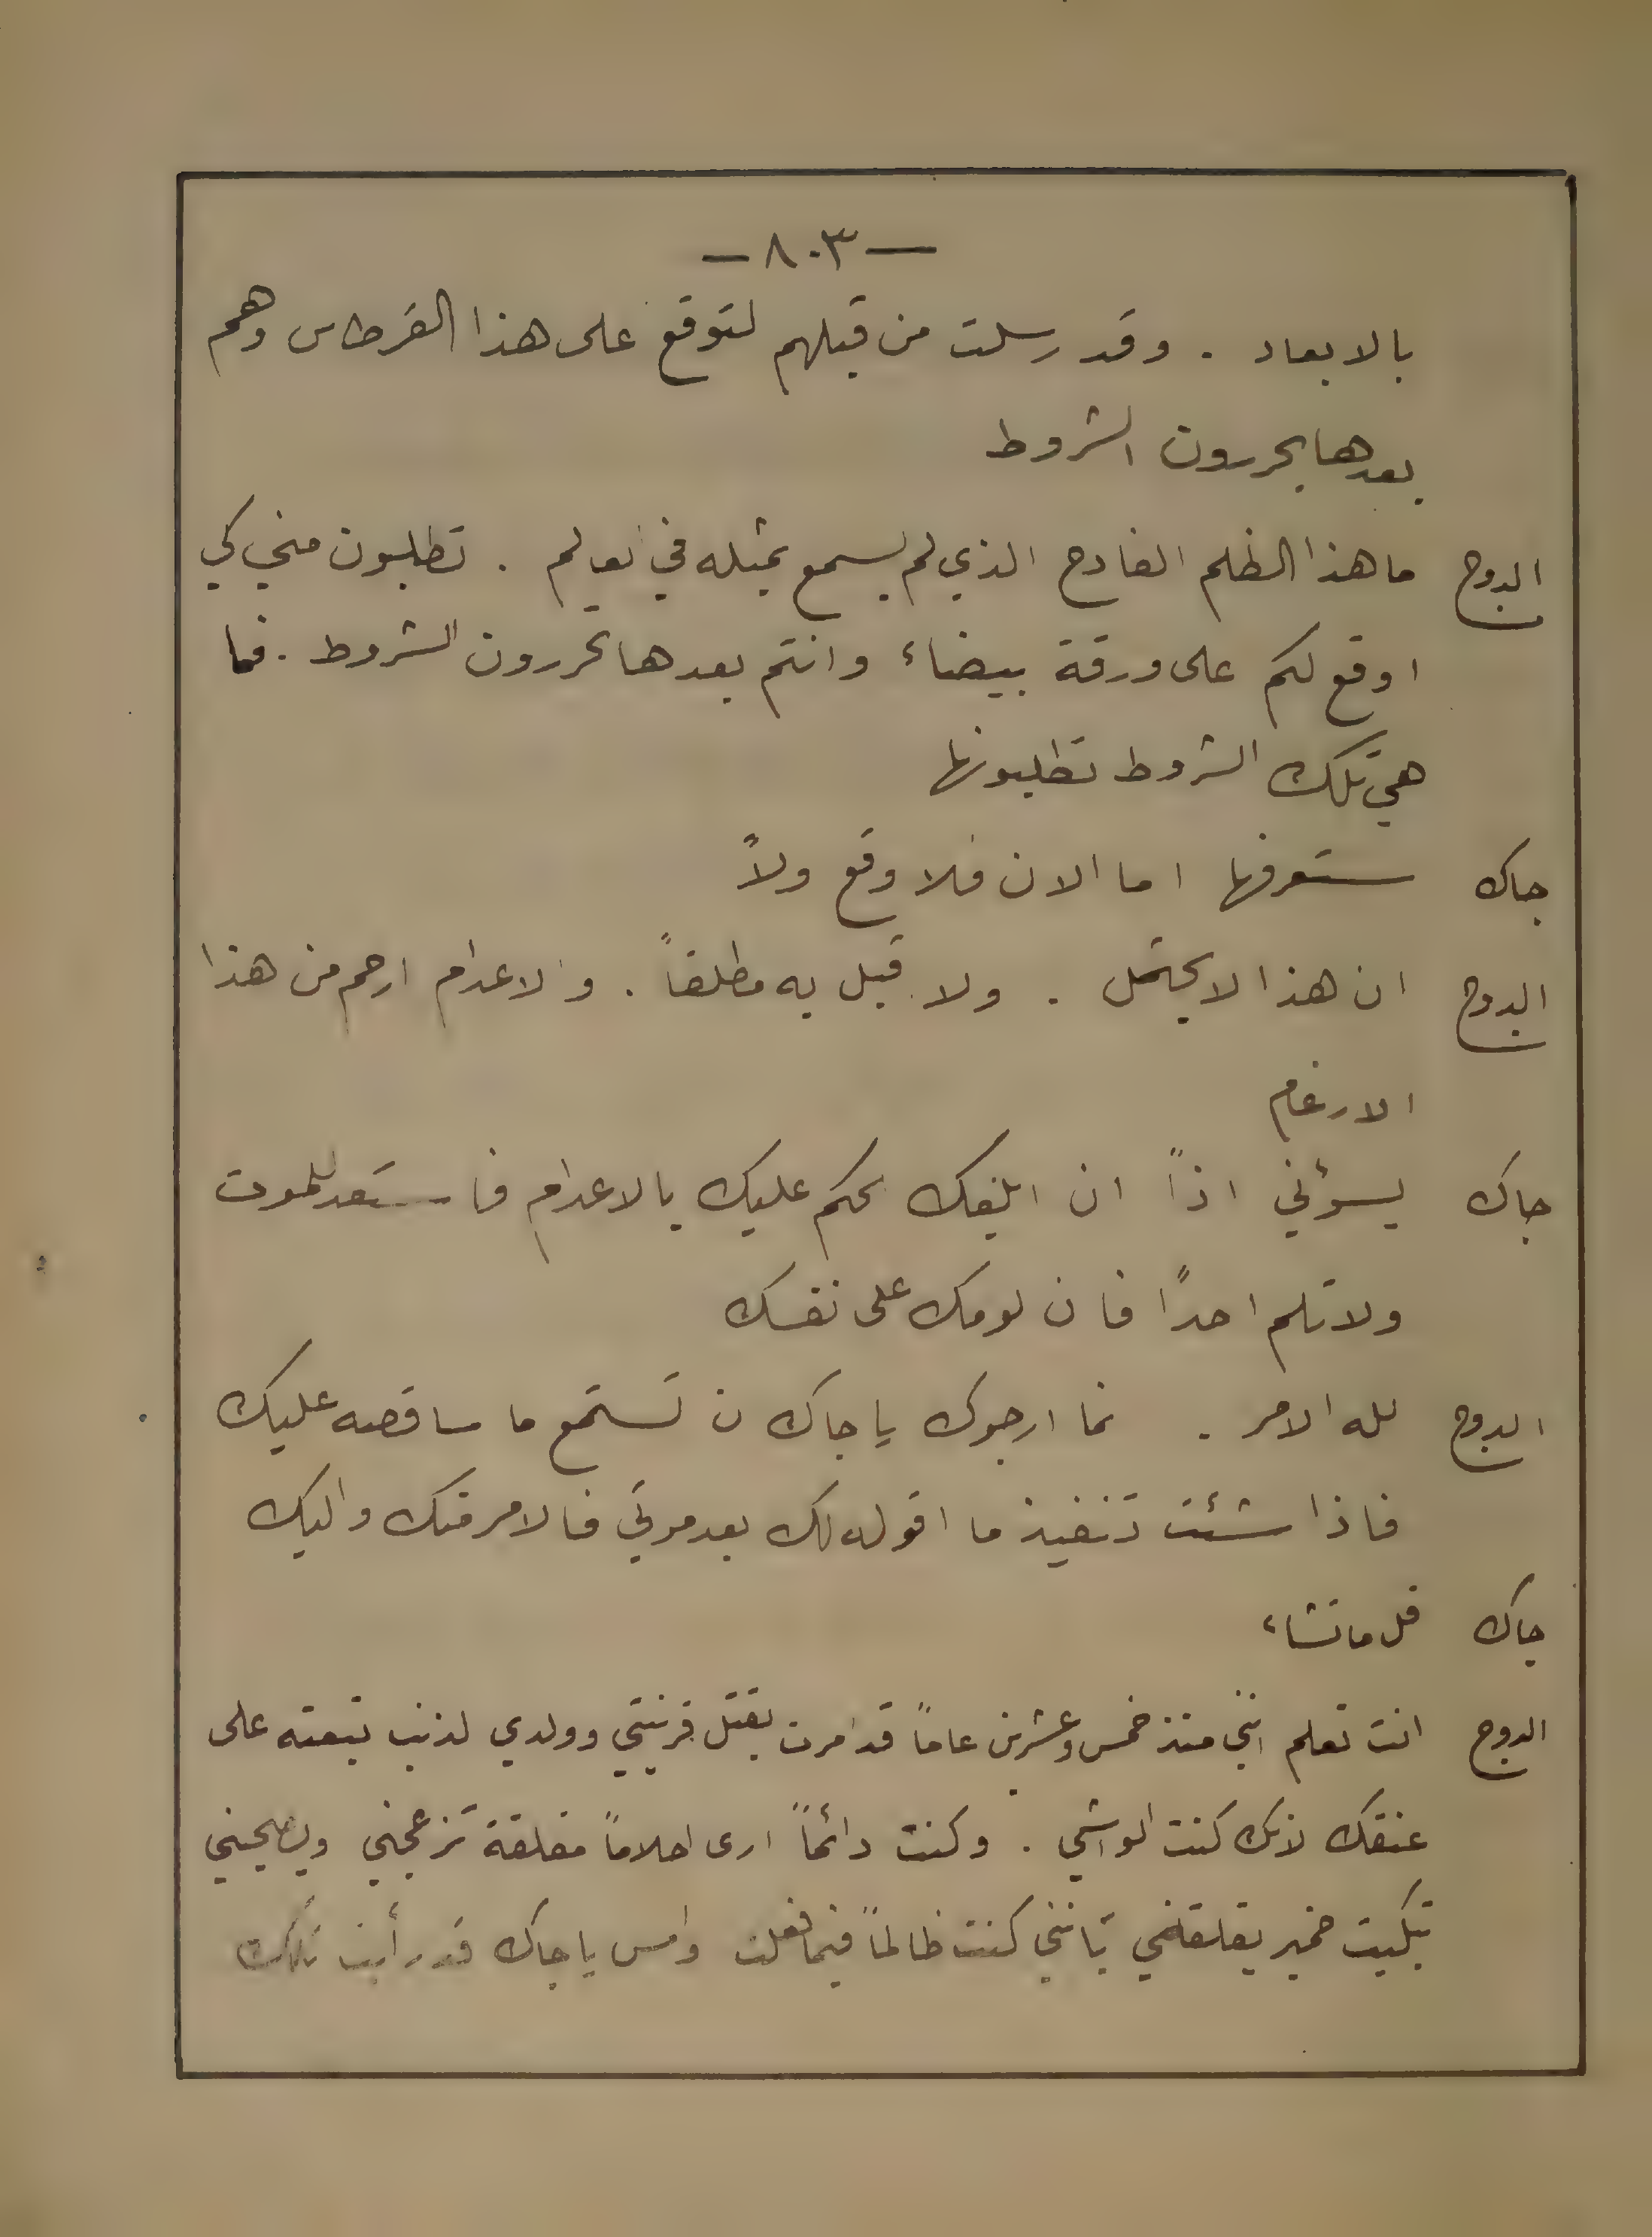 — ٨٠٣ —
بالابعاد . وقد رسلت من قبلهم لتوقع على هذا القرطاس وهم
بعدها يحررون الشروط
الدوج ما هذا الظلم الفادح الذي لم يسمع بمثله في لعالم . تطلبون مني كي
اوقع لكم على ورقة بيضاء وانتم بعدها تحررون الشروط . فما
هي تلك الشروط تطلبونها
جاك ستعرفها اما الان فلا وقع ولاً
الدوج ان هذا لا يحتمل . ولا قبل به مطلقاً . والاعدام ارحم من هذا
الارغام
جاك يسؤني اذاً ان ابلغك لحكم عليك بالاعدام فاستعد للموت
ولا تلم احداً فان لومك على نفسك
الدوج لله الامر . نما ارجوك يا جاك ن تستمع ما ساقصه عليك
فاذا شئت تنفيذ ما اقوله لك بعد موتي فالامر منك واليك
جاك قل ما تشاء
الدوج انت تعلم انني منذ خمس وعشرين عاماً قد امرت بقتل قرينتي وولدي لذنب تبعته على
عنقك لانك كنت الواشي . وكنت دائماً ارى احلاماً مقلقة تزعجني
تبكيت ضمير يقلقني بانني كنت ظالماً فيما فعلت وامس يا جاك قد رأيت تلك